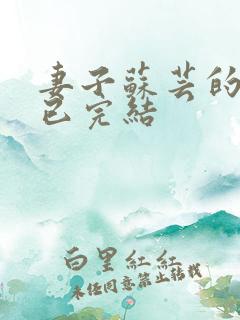 妻子蘇芸的
已完結
白里紅紅
未经同意禁止轉載